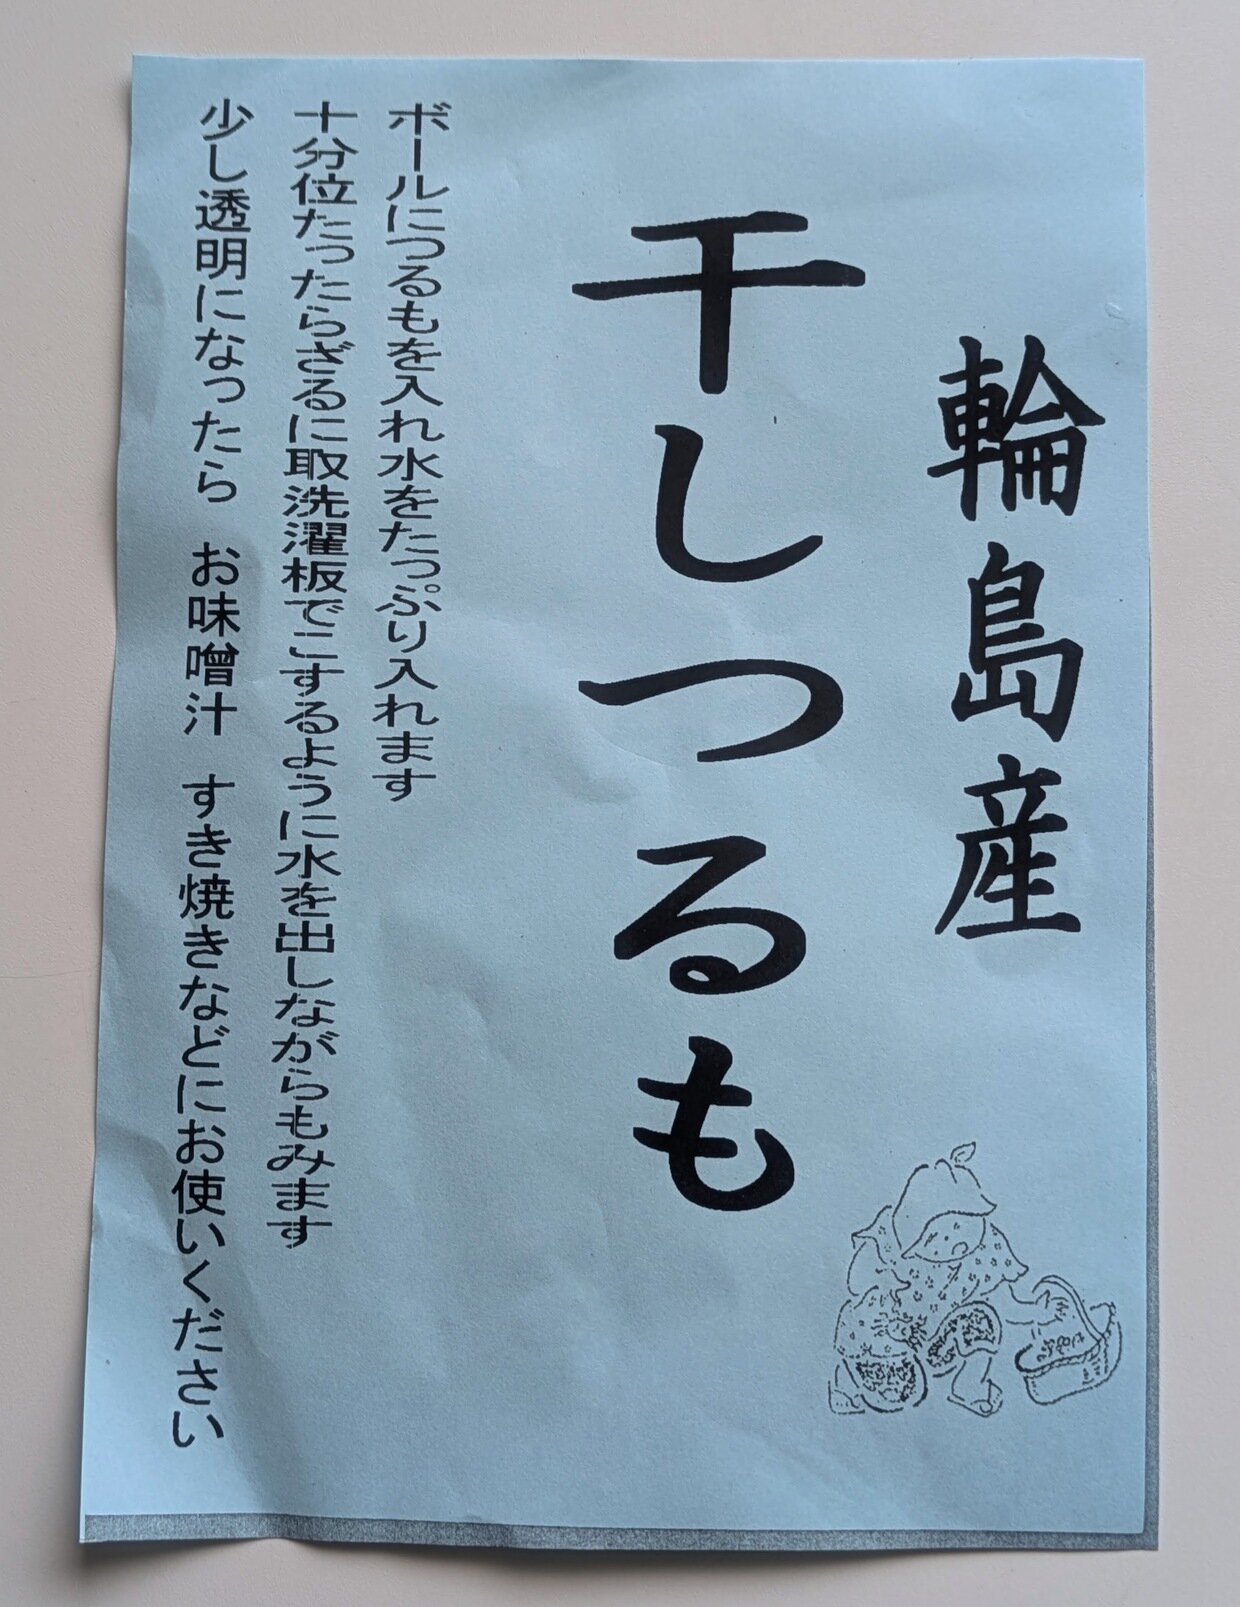 輪島産
干しつるも
ボールにつるもを入れ水をたっぷり入れます
十分位たったらざるに取洗濯板でこするように水を出しながらもみます
少し透明になったら　お味噌汁　すき焼きなどにお使いください